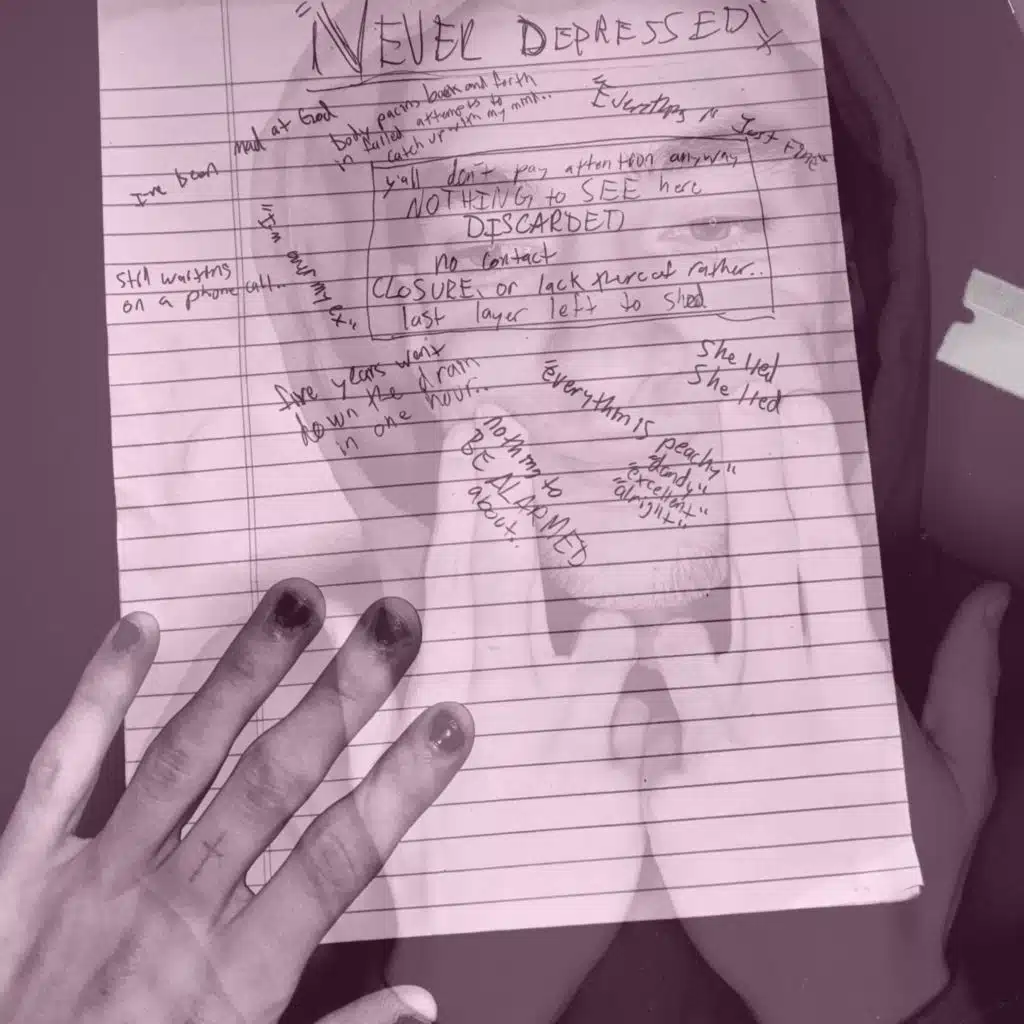 "NEVER DEPRESSED"
I've been mad at God
body paces back and forth
in failed attempts to
catch up with my mind..
"Everything is Just Fine"
y'all don't pay attention anyway
NOTHING to SEE here
DISCARDED
no contact
CLOSURE, or lack thereof rather..
last layer left to shed
still waiting
on a phone call..
"I'm over my ex"
five years went
down the drain
in one hour..
She lied
She lied
"everything is peachy"
"dandy"
"excellent"
"alright"
nothing to
BE ALARMED
about..